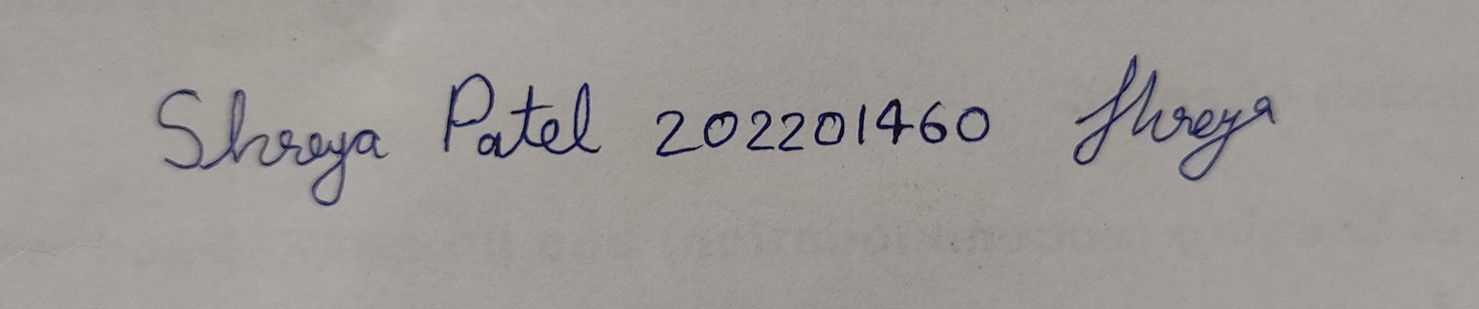 Shreya Patel 202201460 Shreya